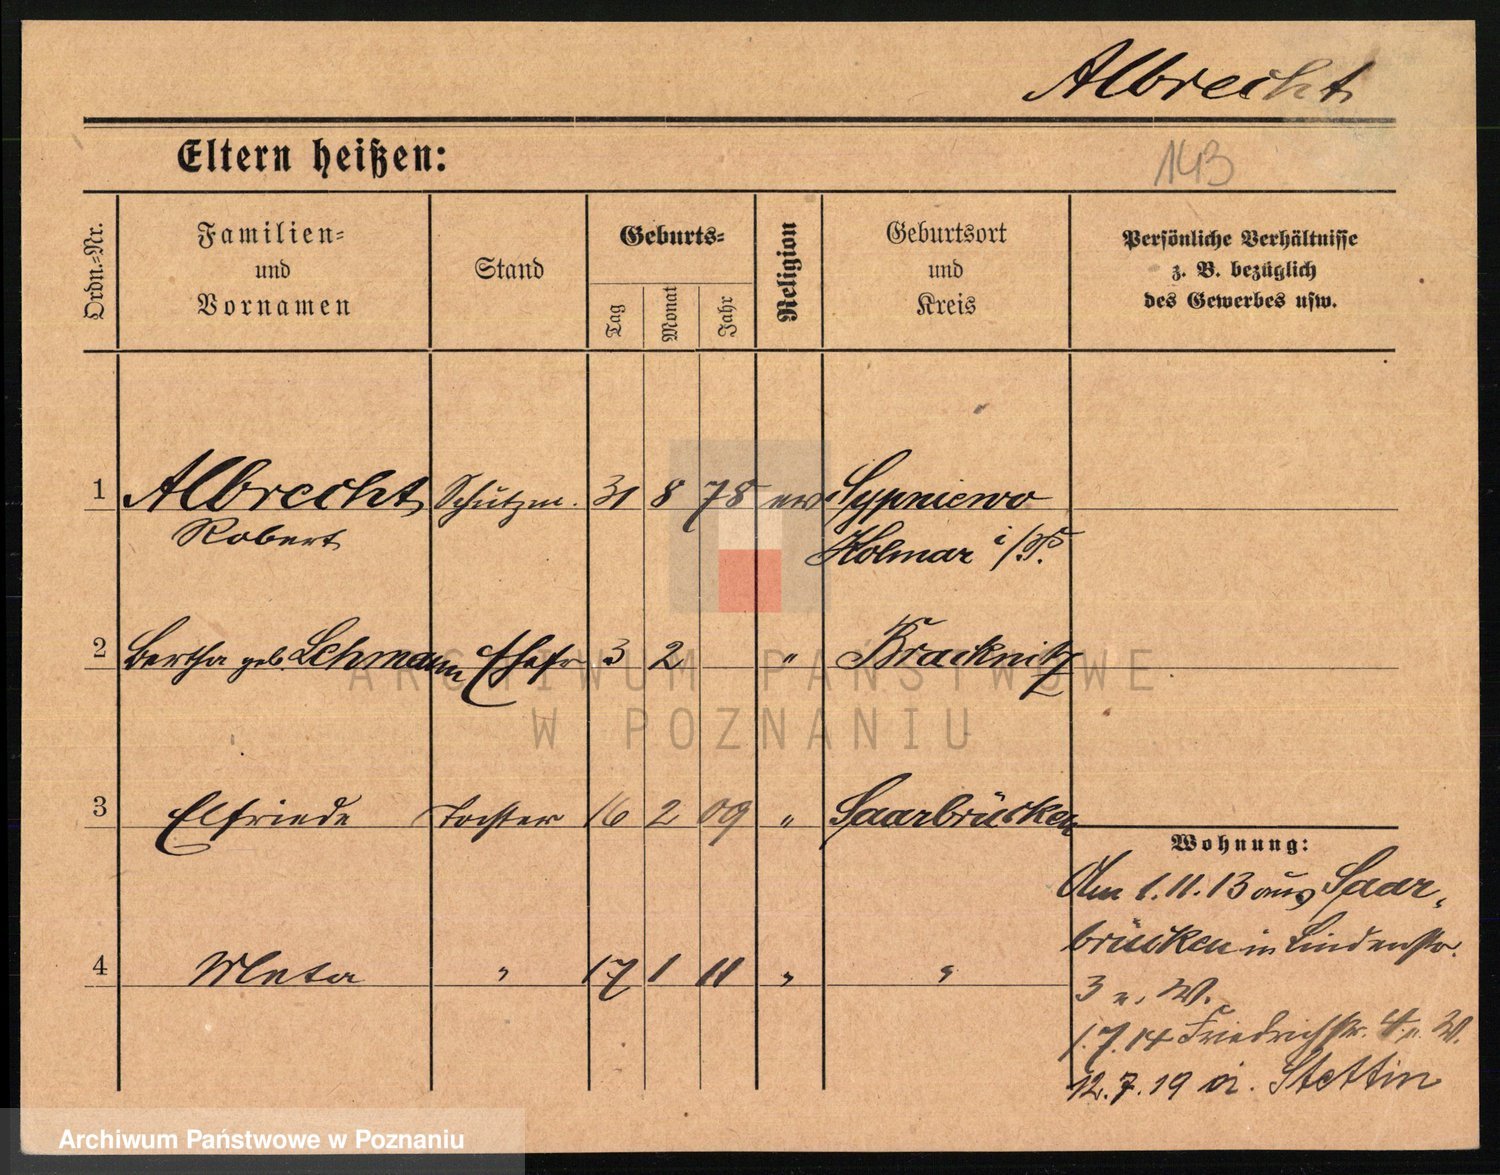 Albrecht
Eltern heißen:
143
Ordn.-Nr.
Familien-
und
Vornamen
Stand
Geburts-
Tag
Monat
Jahr
Religion
Geburtsort
und
Kreis
Persönliche Verhältnisse
z. B. bezüglich
des Gewerbes usw.
1 Albrecht Schutzm. 31 8 78 ev Sypniewo
Robert Kolmar i/P.
2 Bertha geb Lehmann Ehefr 3 2 " Bracknitz
3 Elfriede Tochter 16 2 09 " Saarbrücken
4 Meta " 17 1 11 " "
Wohnung:
Am 1.11.13 aus Saar-
brücken in Lindenstr.
3 W.
1.7.14 Friedrichstr. 4 W.
12.7.19 Stettin
ARCHIWUM PAŃSTWOWE
W POZNANIU
Archiwum Państwowe w Poznaniu